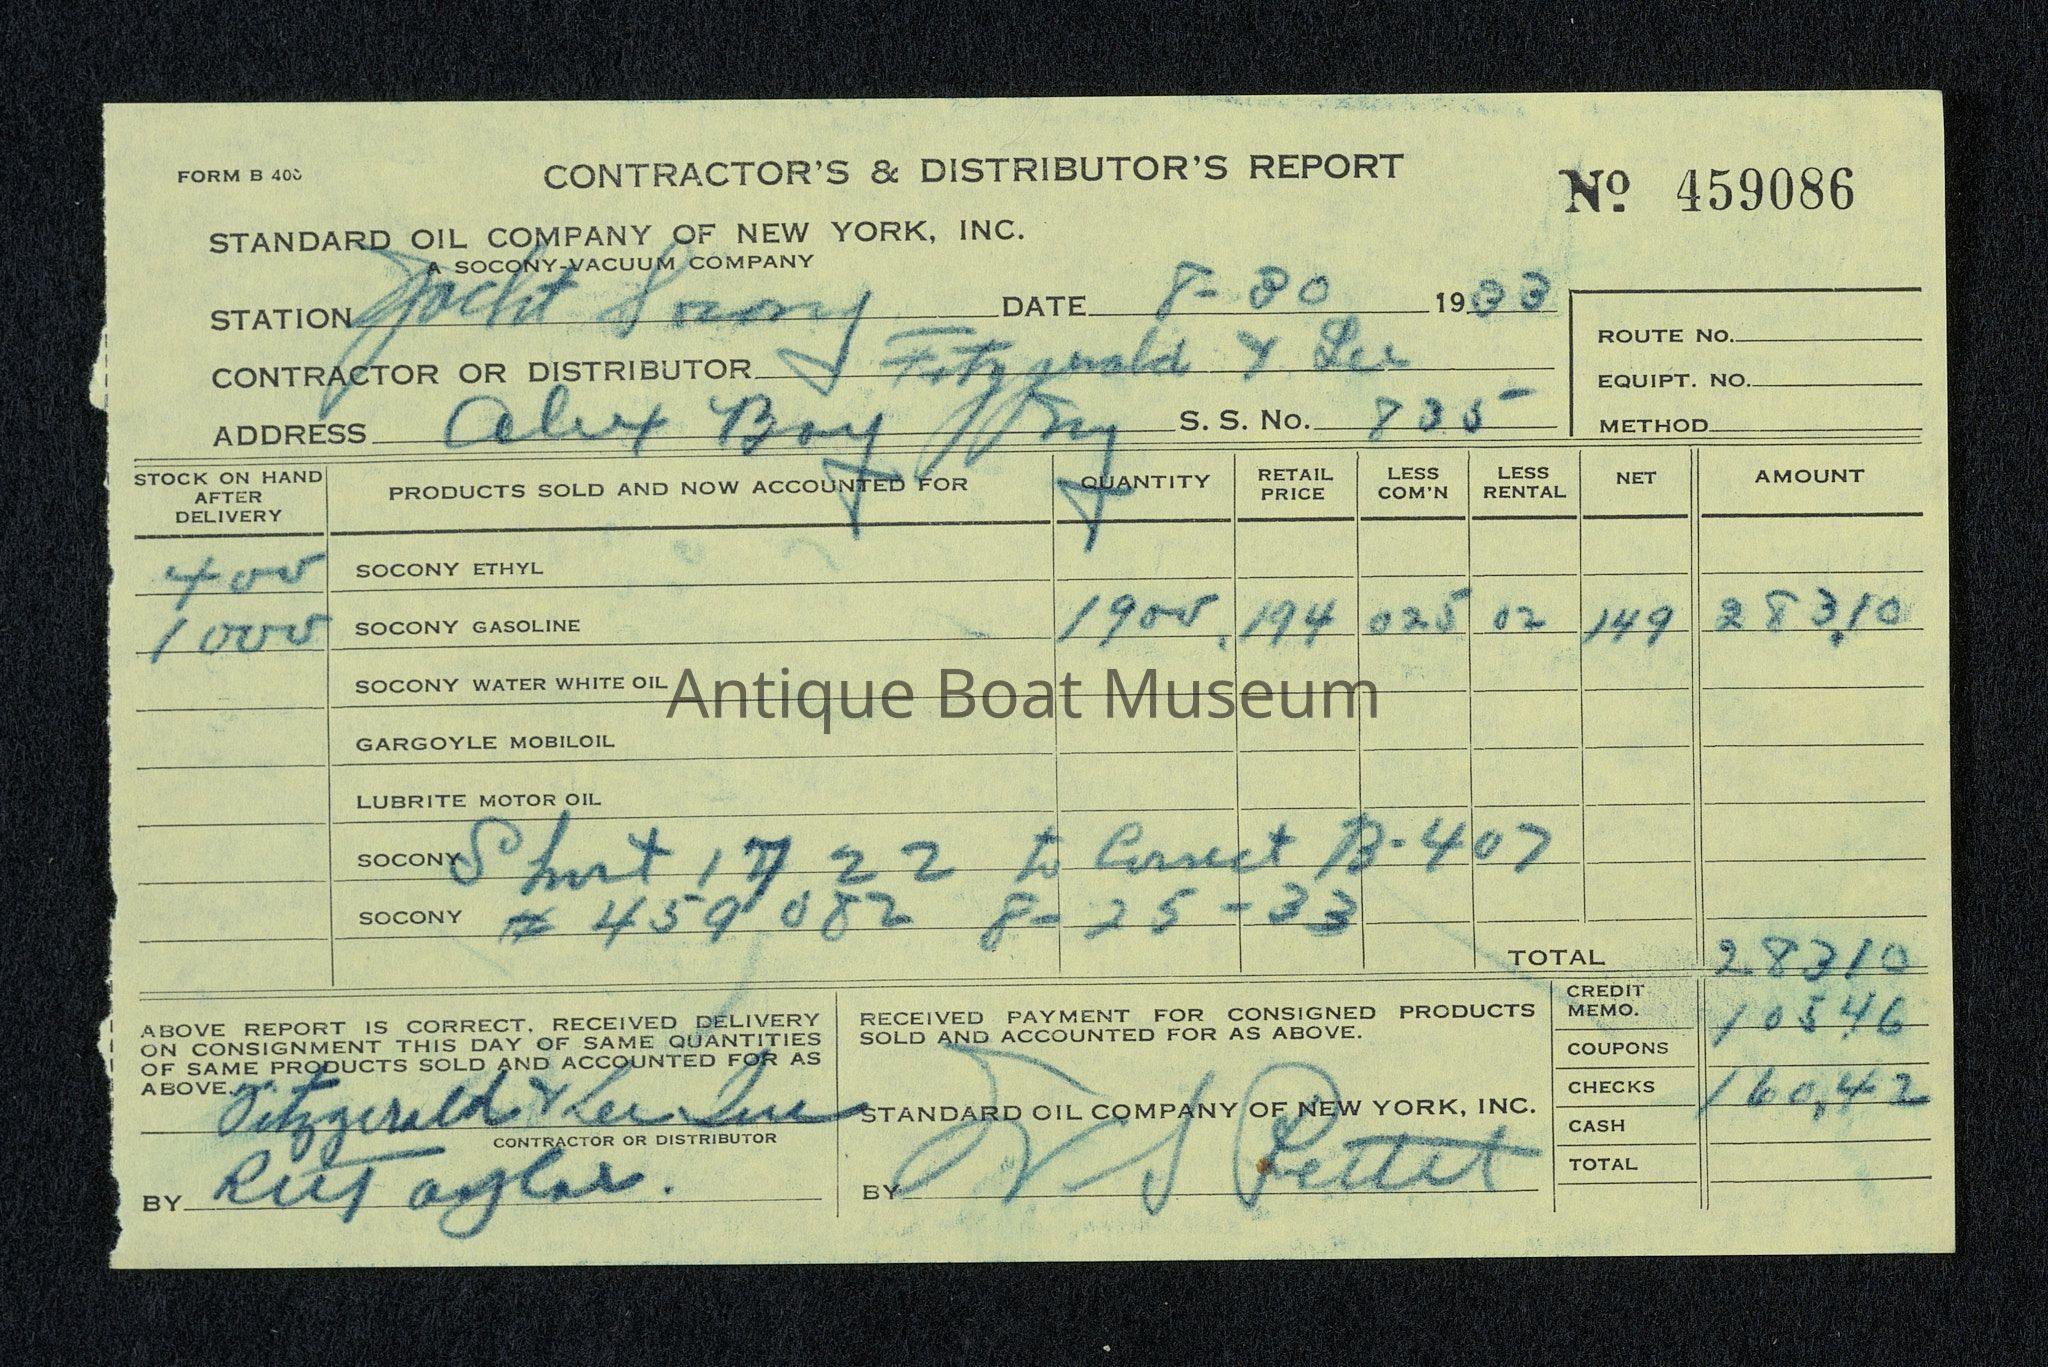 FORM B 400
CONTRACTOR'S & DISTRIBUTOR'S REPORT
No. 459086
STANDARD OIL COMPANY OF NEW YORK, INC.
A SOCONY-VACUUM COMPANY
STATION Yacht Socony DATE 8-30 1933
CONTRACTOR OR DISTRIBUTOR Fitzgerald & Lee
ADDRESS Alex Bay NY S. S. No. 835
ROUTE No.
EQUIPT. NO.
METHOD
STOCK ON HAND AFTER DELIVERY PRODUCTS SOLD AND NOW ACCOUNTED FOR QUANTITY RETAIL PRICE LESS COM'N LESS RENTAL NET AMOUNT
400 SOCONY ETHYL
1000 SOCONY GASOLINE 1900 .194 025 02 149 283.10
SOCONY WATER WHITE OIL
Antique Boat Museum
GARGOYLE MOBILOIL
LUBRITE MOTOR OIL
SOCONY Short 17 22 to Correct B-407
SOCONY # 459082 8-25-33
TOTAL 28310
CREDIT MEMO. 105.46
COUPONS
CHECKS 160.42
CASH
TOTAL
ABOVE REPORT IS CORRECT, RECEIVED DELIVERY
ON CONSIGNMENT THIS DAY OF SAME QUANTITIES
OF SAME PRODUCTS SOLD AND ACCOUNTED FOR AS
ABOVE.
Fitzgerald & Lee Inc
CONTRACTOR OR DISTRIBUTOR
BY Taylor.
RECEIVED PAYMENT FOR CONSIGNED PRODUCTS
SOLD AND ACCOUNTED FOR AS ABOVE.
STANDARD OIL COMPANY OF NEW YORK, INC.
BY